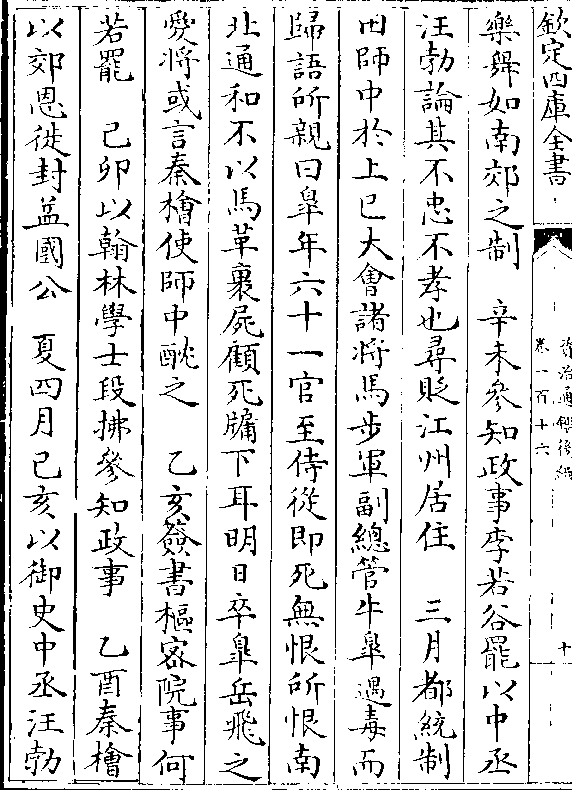 欽定四庫全書
資治通鑑後編
卷一百十六
十
樂舞如南郊之制　辛未參知政事李若谷罷以中丞
汪勃論其不忠不孝也尋貶江州居住　三月都統制
田師中於上巳大會諸將馬步軍副總管牛臯遇毒而
歸語所親曰臯年六十一官至侍從即死無恨所恨南
北通和不以馬革裹屍顧死牖下耳明日卒臯岳飛之
愛將或言秦檜使師中酖之　乙亥簽書樞密院事何
若罷　己卯以翰林學士段拂參知政事　乙酉秦檜
以郊恩徙封益國公　夏四月己亥以御史中丞汪勃